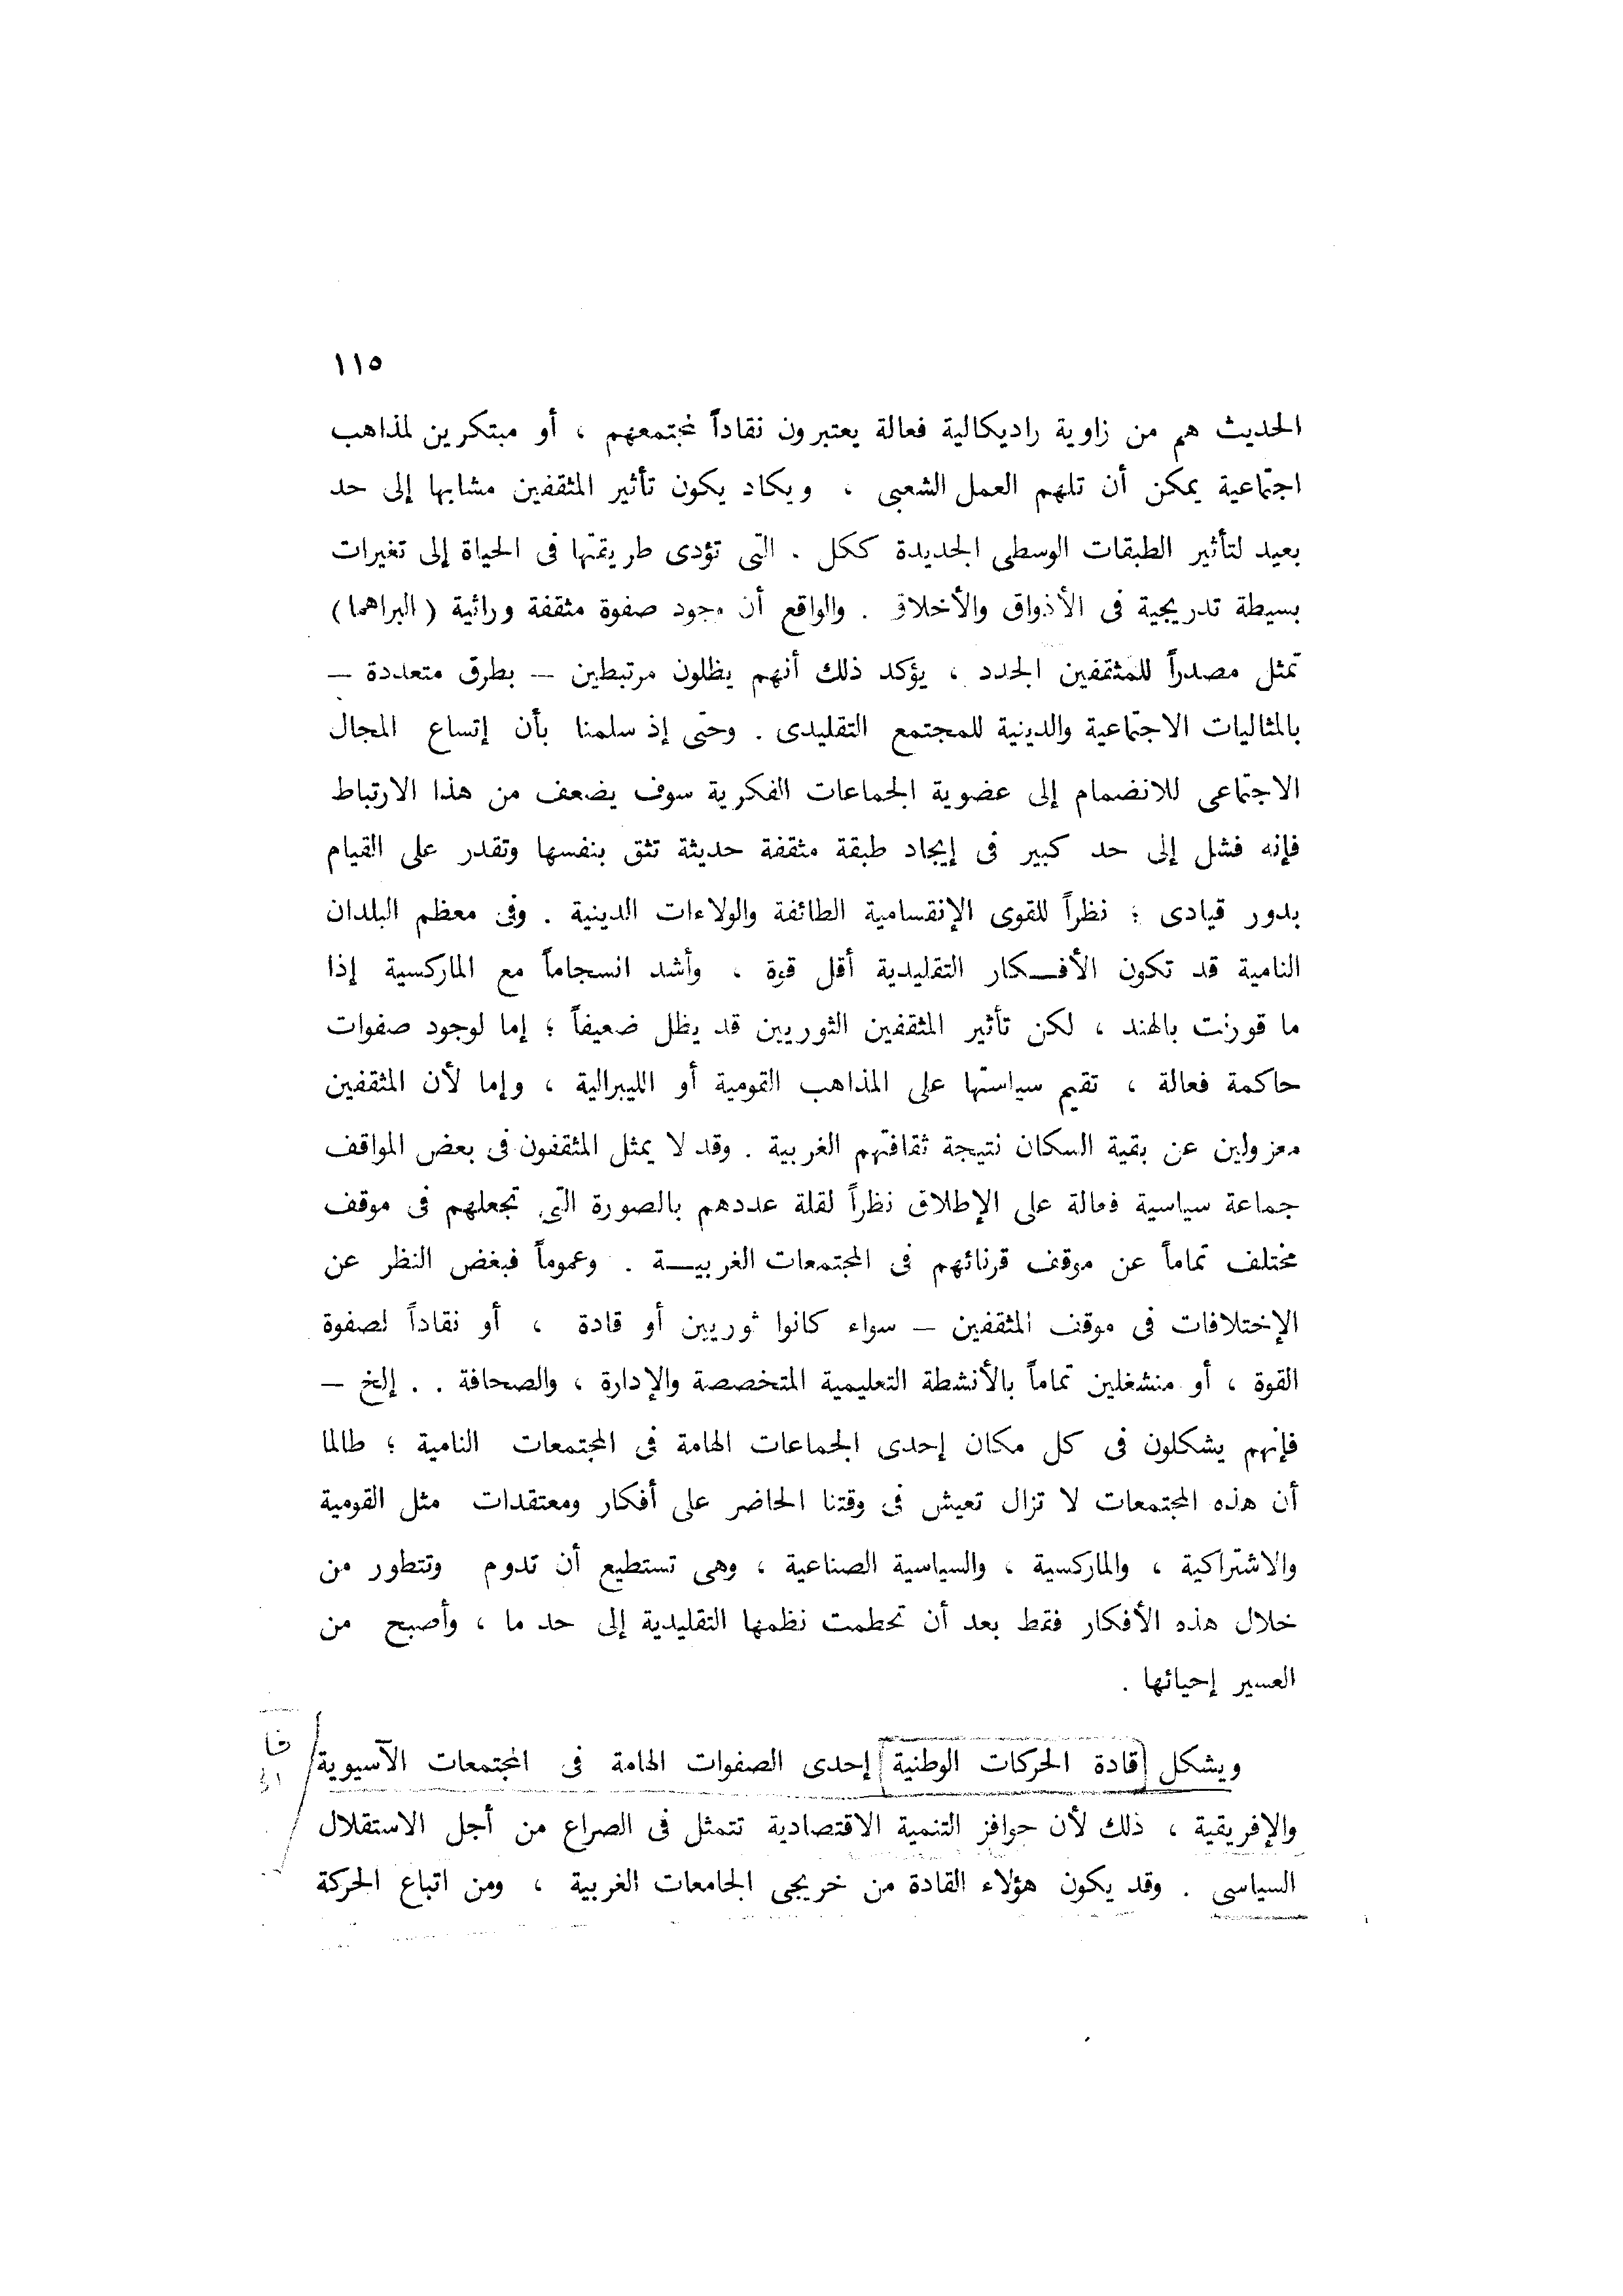 ١١٥
الحديث هم من زاوية راديكالية فعالة يعتبرون نقاداً لمجتمعهم ، أو مبتكرين لمذاهب
اجتماعية يمكن أن تلهم العمل الشعبى ، ويكاد يكون تأثير المثقفين مشابها إلى حد
بعيد لتأثير الطبقات الوسطى الجديدة ككل . التى تؤدى طريقتها فى الحياة إلى تغيرات
بسيطة تدريجية فى الأذواق والأخلاق . والواقع أن وجود صفوة مثقفة وراثية ( البراهما )
تمثل مصدراً للمثقفين الجدد ، يؤكد ذلك أنهم يظلون مرتبطين — بطرق متعددة —
بالمثاليات الاجتماعية والدينية للمجتمع التقليدى . وحتى إذ سلمنا بأن إتساع المجال
الاجتماعى للانضمام إلى عضوية الجماعات الفكرية سوف يضعف من هذا الارتباط
فإنه فشل إلى حد كبير فى إيجاد طبقة مثقفة حديثة تثق بنفسها وتقدر على القيام
بدور قيادى ؛ نظراً للقوى الإنقسامية الطائفة والولاءات الدينية . وفى معظم البلدان
النامية قد تكون الأفـكار التقليدية أقل قوة ، وأشد انسجاماً مع الماركسية إذا
ما قورنت بالهند ، لكن تأثير المثقفين الثوريين قد يظل ضعيفاً ؛ إما لوجود صفوات
حاكمة فعالة ، تقيم سياستها على المذاهب القومية أو الليبرالية ، وإما لأن المثقفين
معزولين عن بقية السكان نتيجة ثقافتهم الغربية . وقد لا يمثل المثقفون فى بعض المواقف
جماعة سياسية فعالة على الإطلاق نظراً لقلة عددهم بالصورة التى تجعلهم فى موقف
مختلف تماماً عن موقف قرنائهم فى المجتمعات الغربيـــة . وعموماً فبغض النظر عن
الإختلافات فى موقف المثقفين — سواء كانوا ثوريين أو قادة ، أو نقاداً لصفوة
القوة ، أو منشغلين تماماً بالأنشطة التعليمية المتخصصة والإدارة ، والصحافة . . إلخ —
فإنهم يشكلون فى كل مكان إحدى الجماعات الهامة فى المجتمعات النامية ؛ طالما
أن هذه المجتمعات لا تزال تعيش فى وقتنا الحاضر على أفكار ومعتقدات مثل القومية
والاشتراكية ، والماركسية ، والسياسية الصناعية ، وهى تستطيع أن تدوم وتتطور من
خلال هذه الأفكار فقط بعد أن تحطمت نظمها التقليدية إلى حد ما ، وأصبح من
العسير إحيائها .
ويشكل قادة الحركات الوطنية إحدى الصفوات الهامة فى المجتمعات الآسيوية
والإفريقية ، ذلك لأن حوافز التنمية الاقتصادية تتمثل فى الصراع من أجل الاستقلال
السياسى . وقد يكون هؤلاء القادة من خريجى الجامعات الغربية ، ومن اتباع الحركة